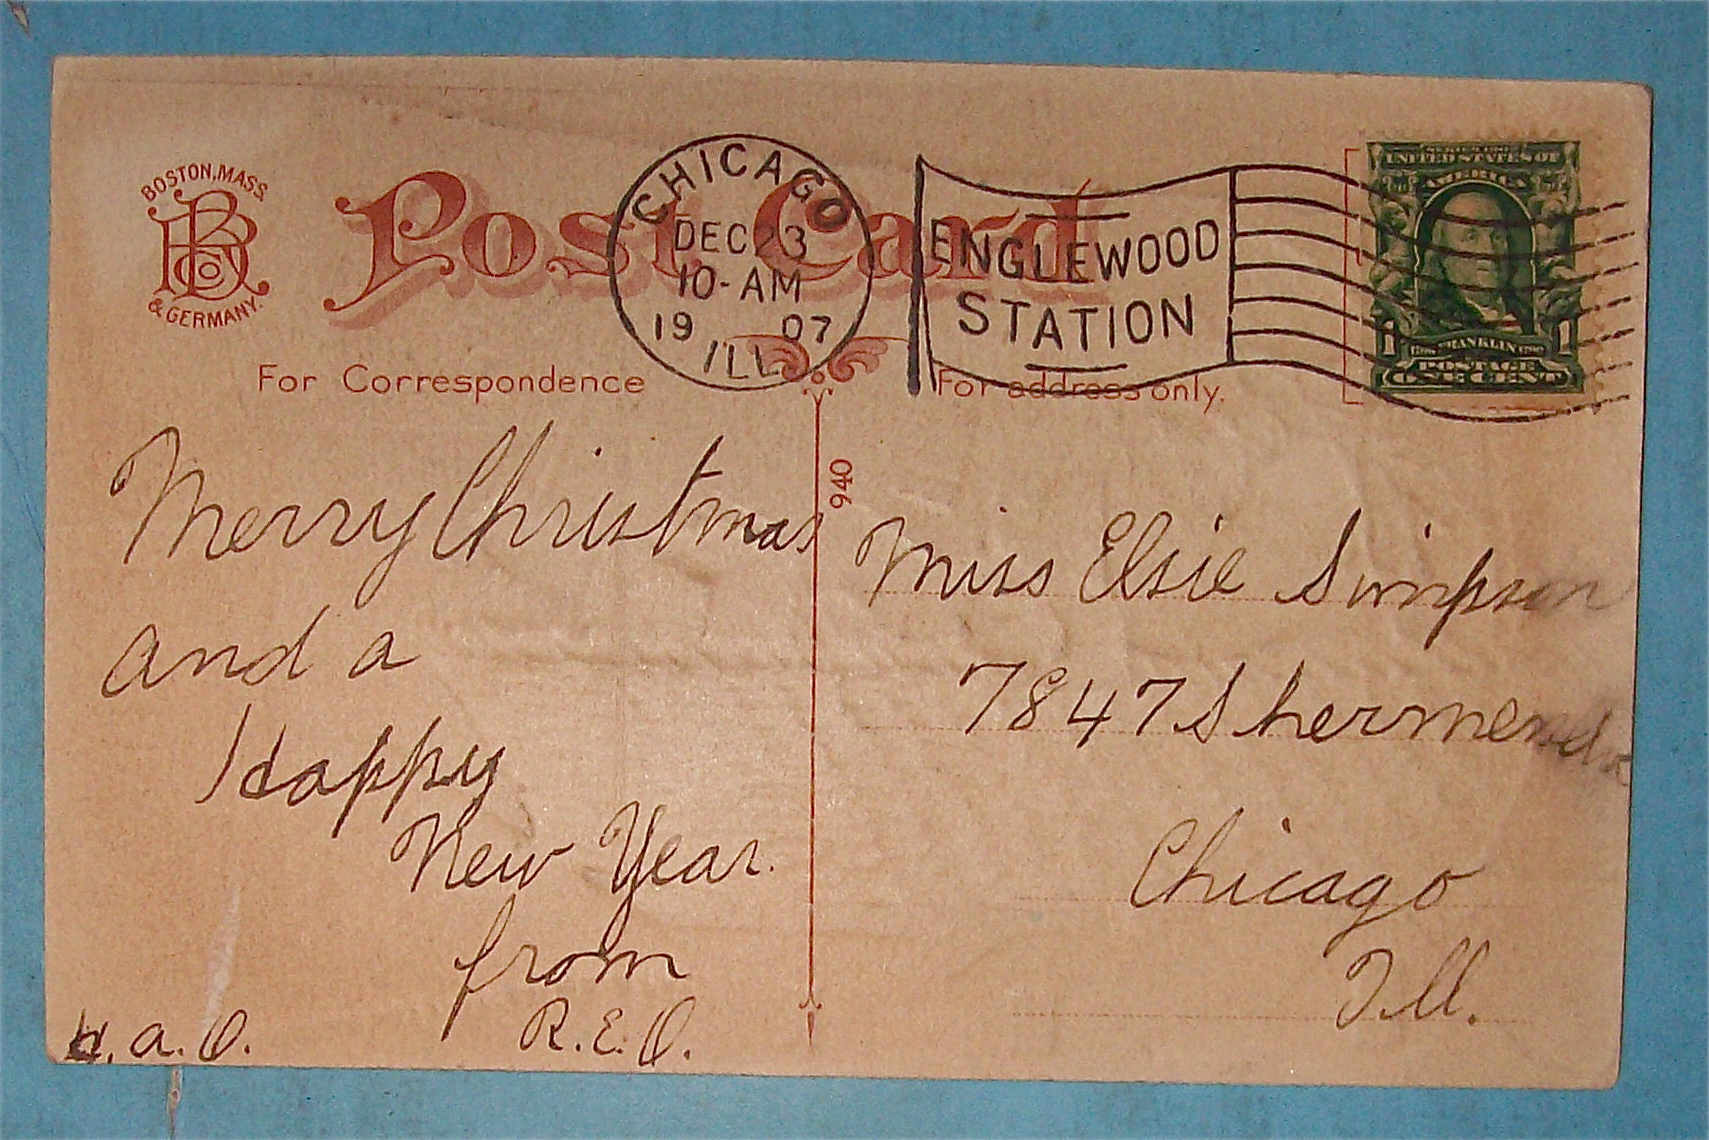 BOSTON, MASS.
B Co
& GERMANY.
Post Card
CHICAGO
DEC 23
10-AM
19 07
ILL
ENGLEWOOD
STATION
UNITED STATES OF
AMERICA
FRANKLIN
POSTAGE
1 ONE CENT 1
For Correspondence
For address only.
940
Merry Christmas
and a
Happy
New Year.
from
R.E.O.
a. O.
Miss Elsie Simpson
7847
Chicago
Ill.